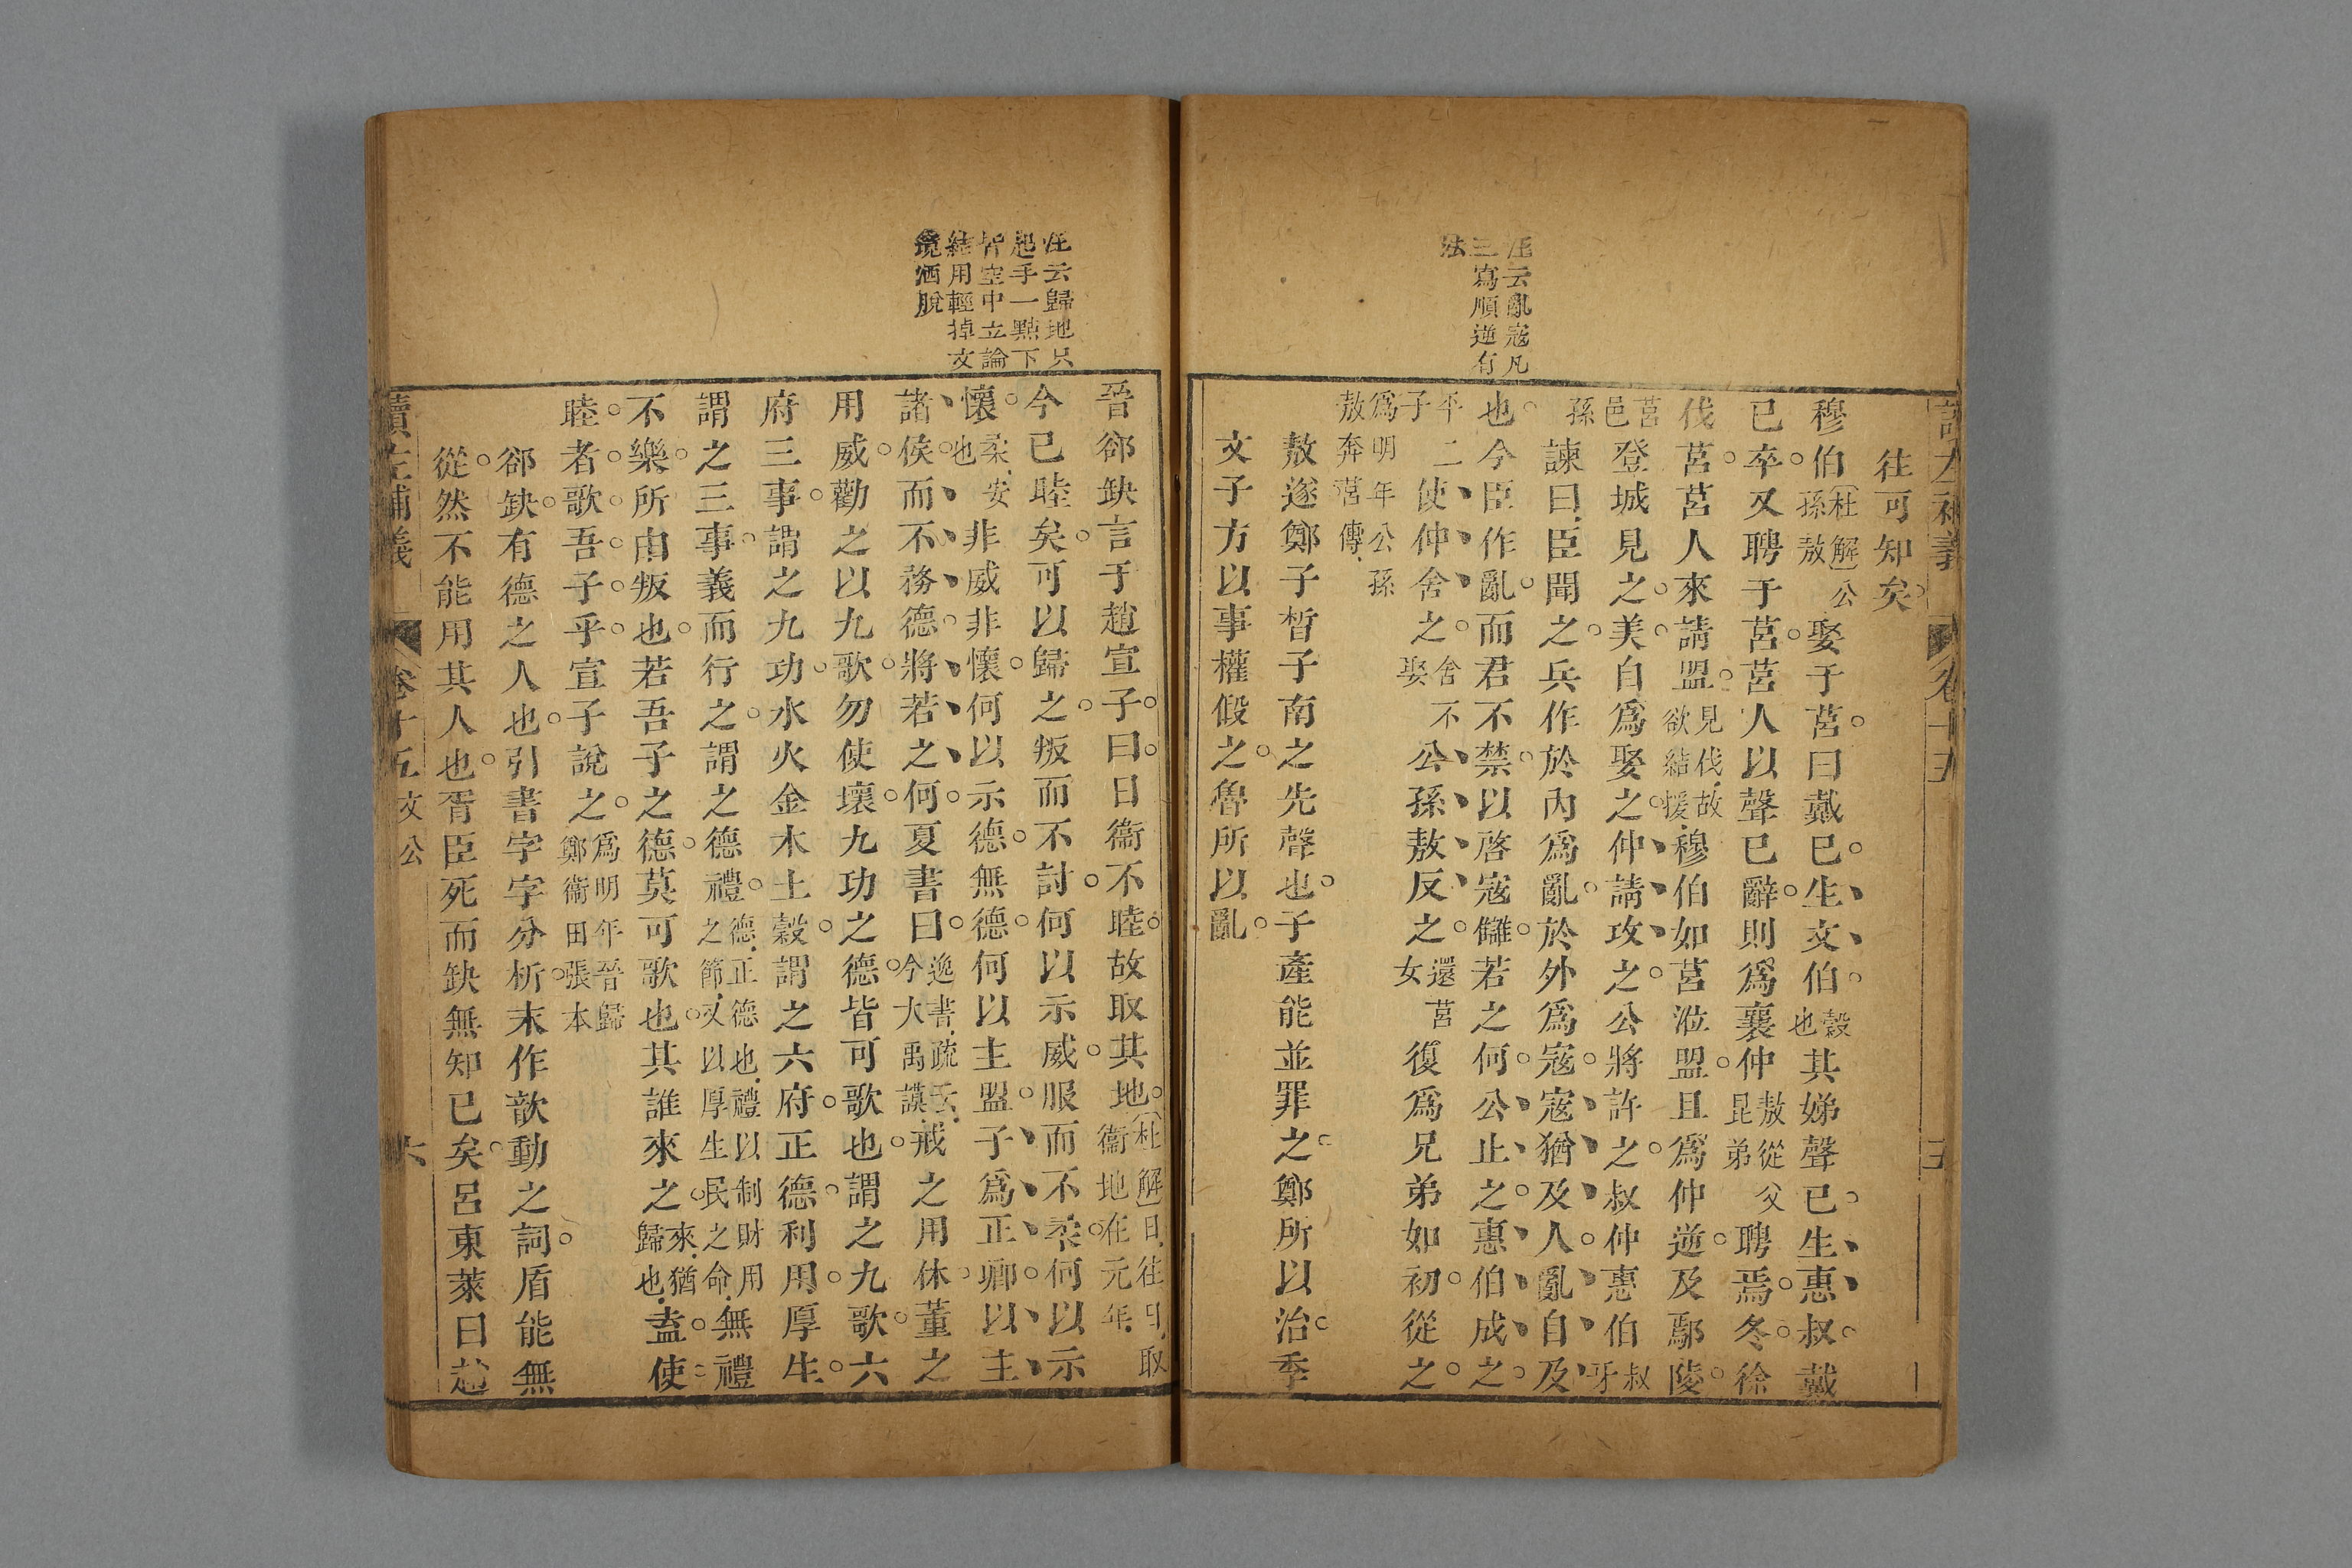 往可知矣
穆伯杜解公孫敖娶于莒曰戴已生文伯穀也其娣聲已生惠叔戴
已卒又聘于莒莒人以聲已辭則為襄仲敖從父昆弟聘焉冬徐
伐莒莒人來請盟見伐故欲結援穆伯如莒涖盟且為仲逆及鄢陵
莒邑登城見之美自為娶之仲請攻之公將許之叔仲惠伯叔牙
孫諫曰臣聞之兵作於內為亂於外為寇寇猶及人亂自及
也今臣作亂而君不禁以啓寇讎若之何公止之惠伯成之
平二子使仲舍之舍不娶公孫敖反之還莒女復為兄弟如初從之
為明年公孫敖奔莒傳
敖遂鄭子晳子南之先聲也子產能並罪之鄭所以治季
文子方以事權假之魯所以亂
汪云亂寇凡
三寫順逆有
法
晉郤缺言于趙宣子曰日衞不睦故取其地杜解日往日取衞地在元年
今已睦矣可以歸之叛而不討何以示威服而不柔何以示
懷柔安也非威非懷何以示德無德何以主盟子為正卿以主
諸侯而不務德將若之何夏書曰逸書疏云今大禹謨戒之用休董之
用威勸之以九歌勿使壞九功之德皆可歌也謂之九歌六
府三事謂之九功水火金木土穀謂之六府正德利用厚生
謂之三事義而行之謂之德禮德正德也禮以制財用之節又以厚生民之命無禮
不樂所由叛也若吾子之德莫可歌也其誰來之來猶歸也盍使
睦者歌吾子乎宣子說之為明年晉歸鄭衞田張本
郤缺有德之人也引書字字分析末作歆動之詞盾能無
從然不能用其人也胥臣死而缺無知已矣呂東萊曰趙
讀左補義
卷十五 文公
六
汪云歸地只
起手一點下
皆空中立論
結用輕掉文
境洒脫